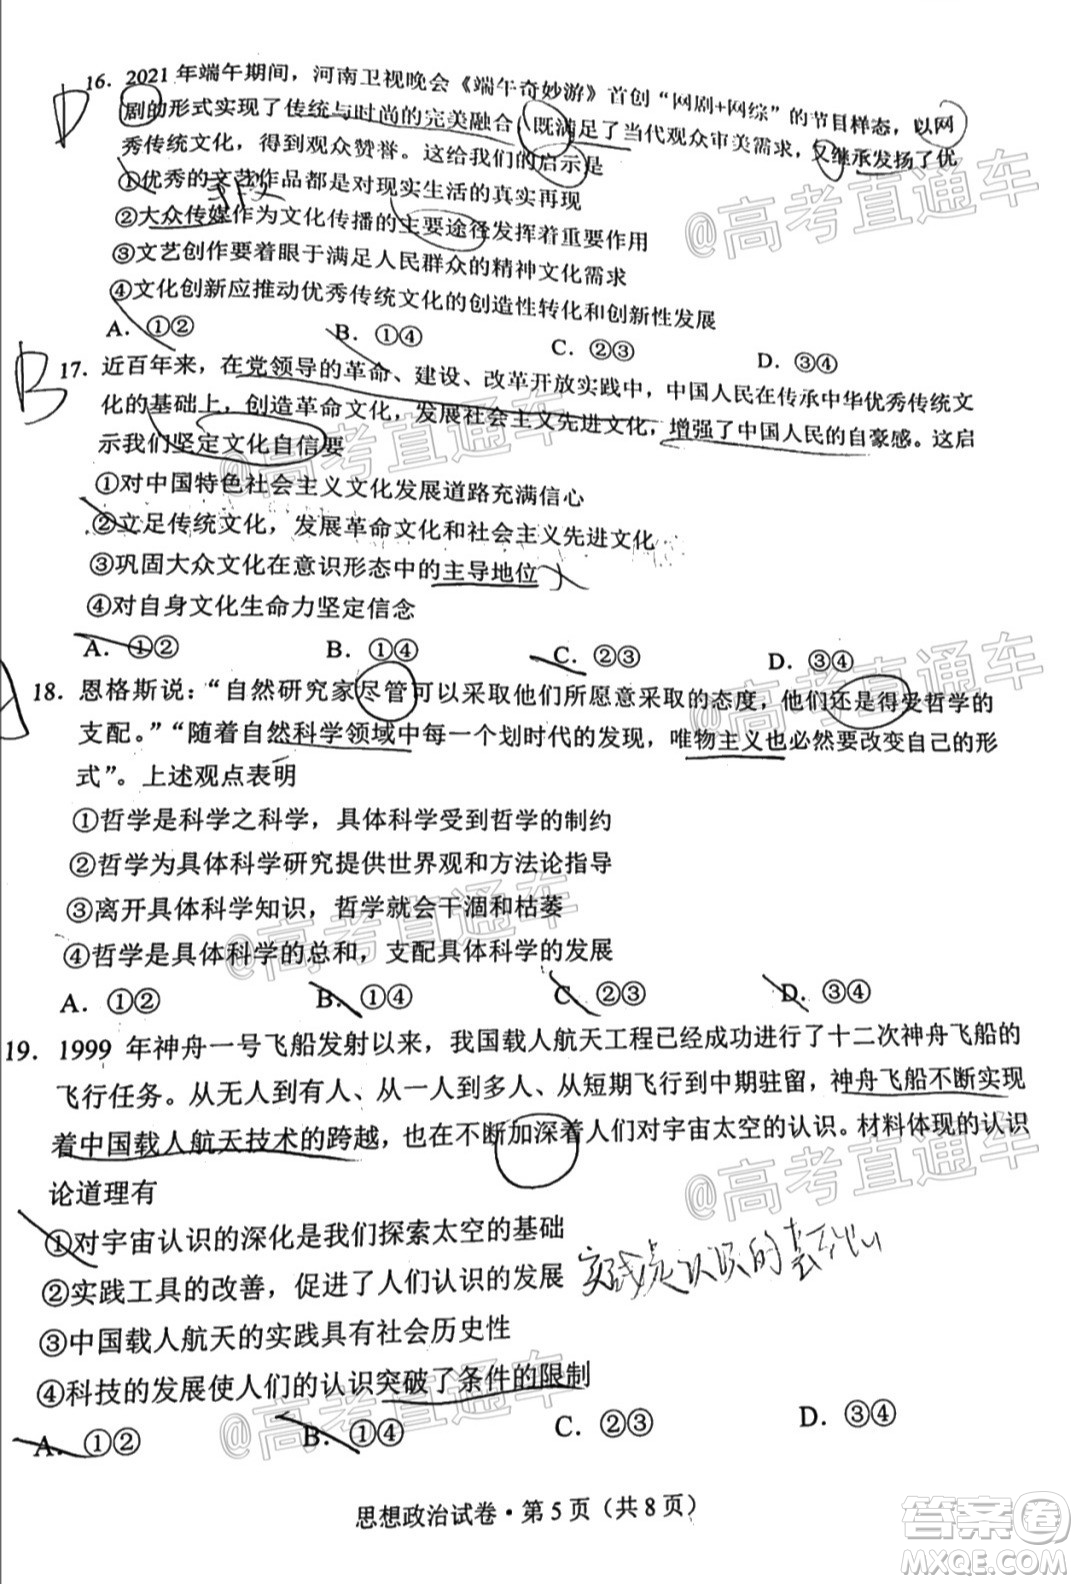 16. 2021年端午期间，河南卫视晚会《端午奇妙游》首创“网剧+网综”的节目样态，以网
剧的形式实现了传统与时尚的完美融合，既满足了当代观众审美需求，又继承发扬了优
秀传统文化，得到观众赞誉。这给我们的启示是
①优秀的文艺作品都是对现实生活的真实再现
②大众传媒作为文化传播的主要途径发挥着重要作用
③文艺创作要着眼于满足人民群众的精神文化需求
④文化创新应推动优秀传统文化的创造性转化和创新性发展
A. ①② B. ①④ C. ②③ D. ③④
D
17. 近百年来，在党领导的革命、建设、改革开放实践中，中国人民在传承中华优秀传统文
化的基础上，创造革命文化，发展社会主义先进文化，增强了中国人民的自豪感。这启
示我们坚定文化自信要
①对中国特色社会主义文化发展道路充满信心
②立足传统文化，发展革命文化和社会主义先进文化
③巩固大众文化在意识形态中的主导地位
④对自身文化生命力坚定信念
A. ①② B. ①④ C. ②③ D. ③④
B
18. 恩格斯说：“自然研究家尽管可以采取他们所愿意采取的态度，他们还是得受哲学的
支配。”“随着自然科学领域中每一个划时代的发现，唯物主义也必然要改变自己的形
式”。上述观点表明
①哲学是科学之科学，具体科学受到哲学的制约
②哲学为具体科学研究提供世界观和方法论指导
③离开具体科学知识，哲学就会干涸和枯萎
④哲学是具体科学的总和，支配具体科学的发展
A. ①② B. ①④ C. ②③ D. ③④
19. 1999 年神舟一号飞船发射以来，我国载人航天工程已经成功进行了十二次神舟飞船的
飞行任务。从无人到有人、从一人到多人、从短期飞行到中期驻留，神舟飞船不断实现
着中国载人航天技术的跨越，也在不断加深着人们对宇宙太空的认识。材料体现的认识
论道理有
①对宇宙认识的深化是我们探索太空的基础
②实践工具的改善，促进了人们认识的发展
实践是认识的基础
③中国载人航天的实践具有社会历史性
④科技的发展使人们的认识突破了条件的限制
A. ①② B. ①④ C. ②③ D. ③④
思想政治试卷·第5页（共8页）
@高考直通车
@高考直通车
@高考直通车
@高考直通车
@高考直通车
@高考直通车
答案圈
MXQE.COM